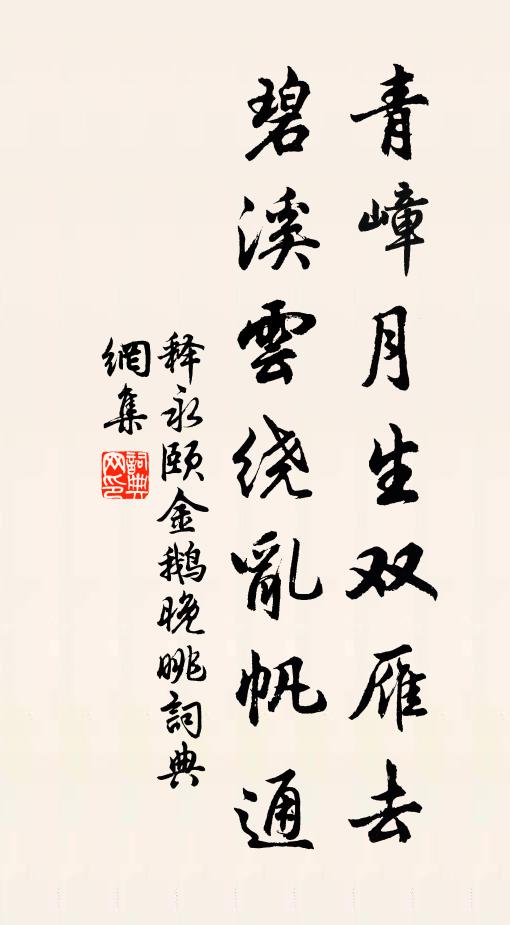 青嶂月生双雁去
碧溪雲绕亂帆通
释永頤金鹅晚眺詞典
網集
詞典
网印